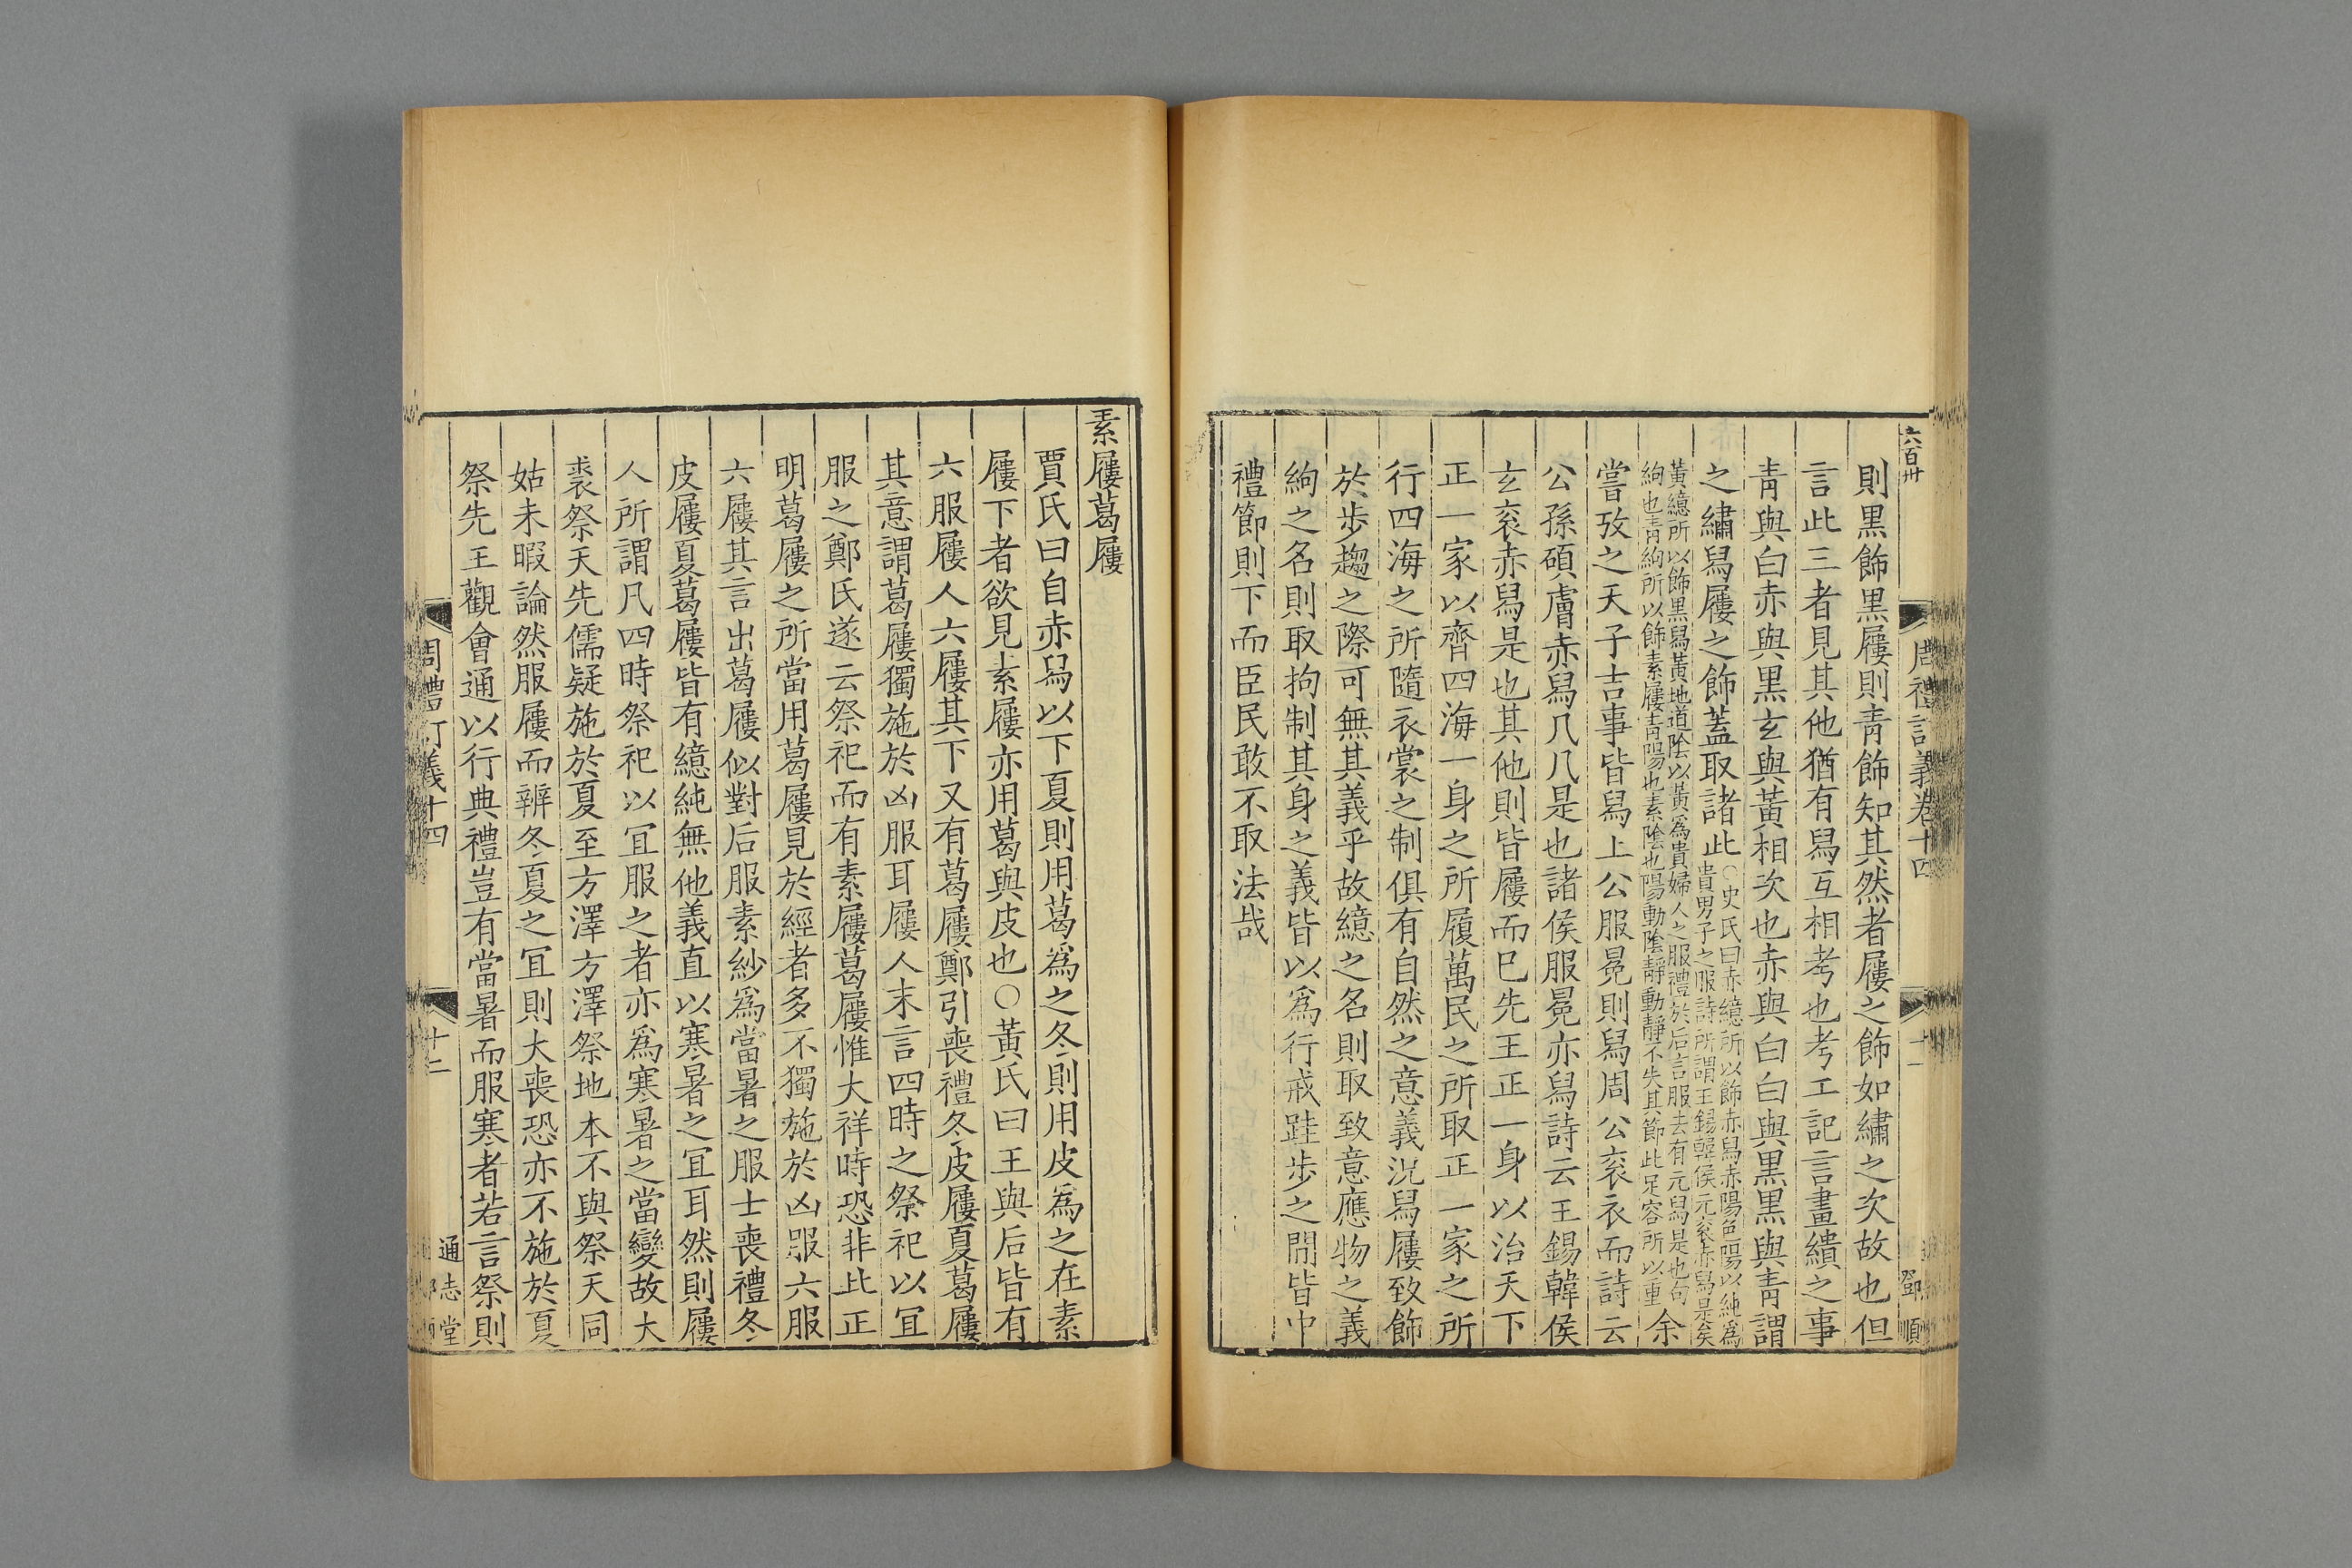 六百卅
周禮訂義卷十四
十一
鄧順
則黑飾黑屨則青飾知其然者屨之飾如繡之次故也但
言此三者見其他猶有舄互相考也考工記言畫繢之事
青與白赤與黑玄與黃相次也赤與白白與黑黑與青謂
之繡舄屨之飾蓋取諸此○史氏曰赤繶所以飾赤舄赤陽色陽以純為
貴男子之服詩所謂王錫韓侯元衮赤舄是矣
黃繶所以飾黑舄黃地道陰以黃為貴婦人之服禮於后言服去有元舄是也句
絇也青絇所以飾素屨青陽也素陰也陽動陰靜動靜不失其節此足容所以重余
嘗攷之天子吉事皆舄上公服冕則舄周公衮衣而詩云
公孫碩膚赤舄几几是也諸侯服冕亦舄詩云王錫韓侯
玄衮赤舄是也其他則皆屨而已先王正一身以治天下
正一家以齊四海一身之所履萬民之所取正一家之所
行四海之所隨衣裳之制俱有自然之意義況舄屨致飾
於步趨之際可無其義乎故繶之名則取致意應物之義
絇之名則取拘制其身之義皆以為行戒跬步之間皆中
禮節則下而臣民敢不取法哉
素屨葛屨
賈氏曰自赤舄以下夏則用葛為之冬則用皮為之在素
屨下者欲見素屨亦用葛與皮也○黃氏曰王與后皆有
六服屨人六屨其下又有葛屨鄭引喪禮冬皮屨夏葛屨
其意謂葛屨獨施於凶服耳屨人末言四時之祭祀以宜
服之鄭氏遂云祭祀而有素屨葛屨惟大祥時恐非此正
明葛屨之所當用葛屨見於經者多不獨施於凶服六服
六屨其言出葛屨似對后服素紗為當暑之服士喪禮冬
皮屨夏葛屨皆有繶純無他義直以寒暑之宜耳然則屨
人所謂凡四時祭祀以宜服之者亦為寒暑之當變故大
裘祭天先儒疑施於夏至方澤方澤祭地本不與祭天同
姑未暇論然服屨而辨冬夏之宜則大喪恐亦不施於夏
祭先王觀會通以行典禮豈有當暑而服寒者若言祭則
周禮訂義十四
十二
通志堂